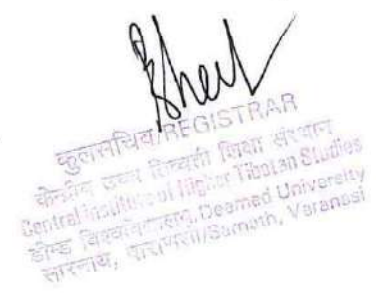 कुलसचिव/REGISTRAR
केन्द्रीय उच्च तिब्बती शिक्षा संस्थान
Central Institute of Higher Tibetan Studies
डीम्ड विश्वविद्यालय, Deemed University
सारनाथ, वाराणसी/Sarnath, Varanasi